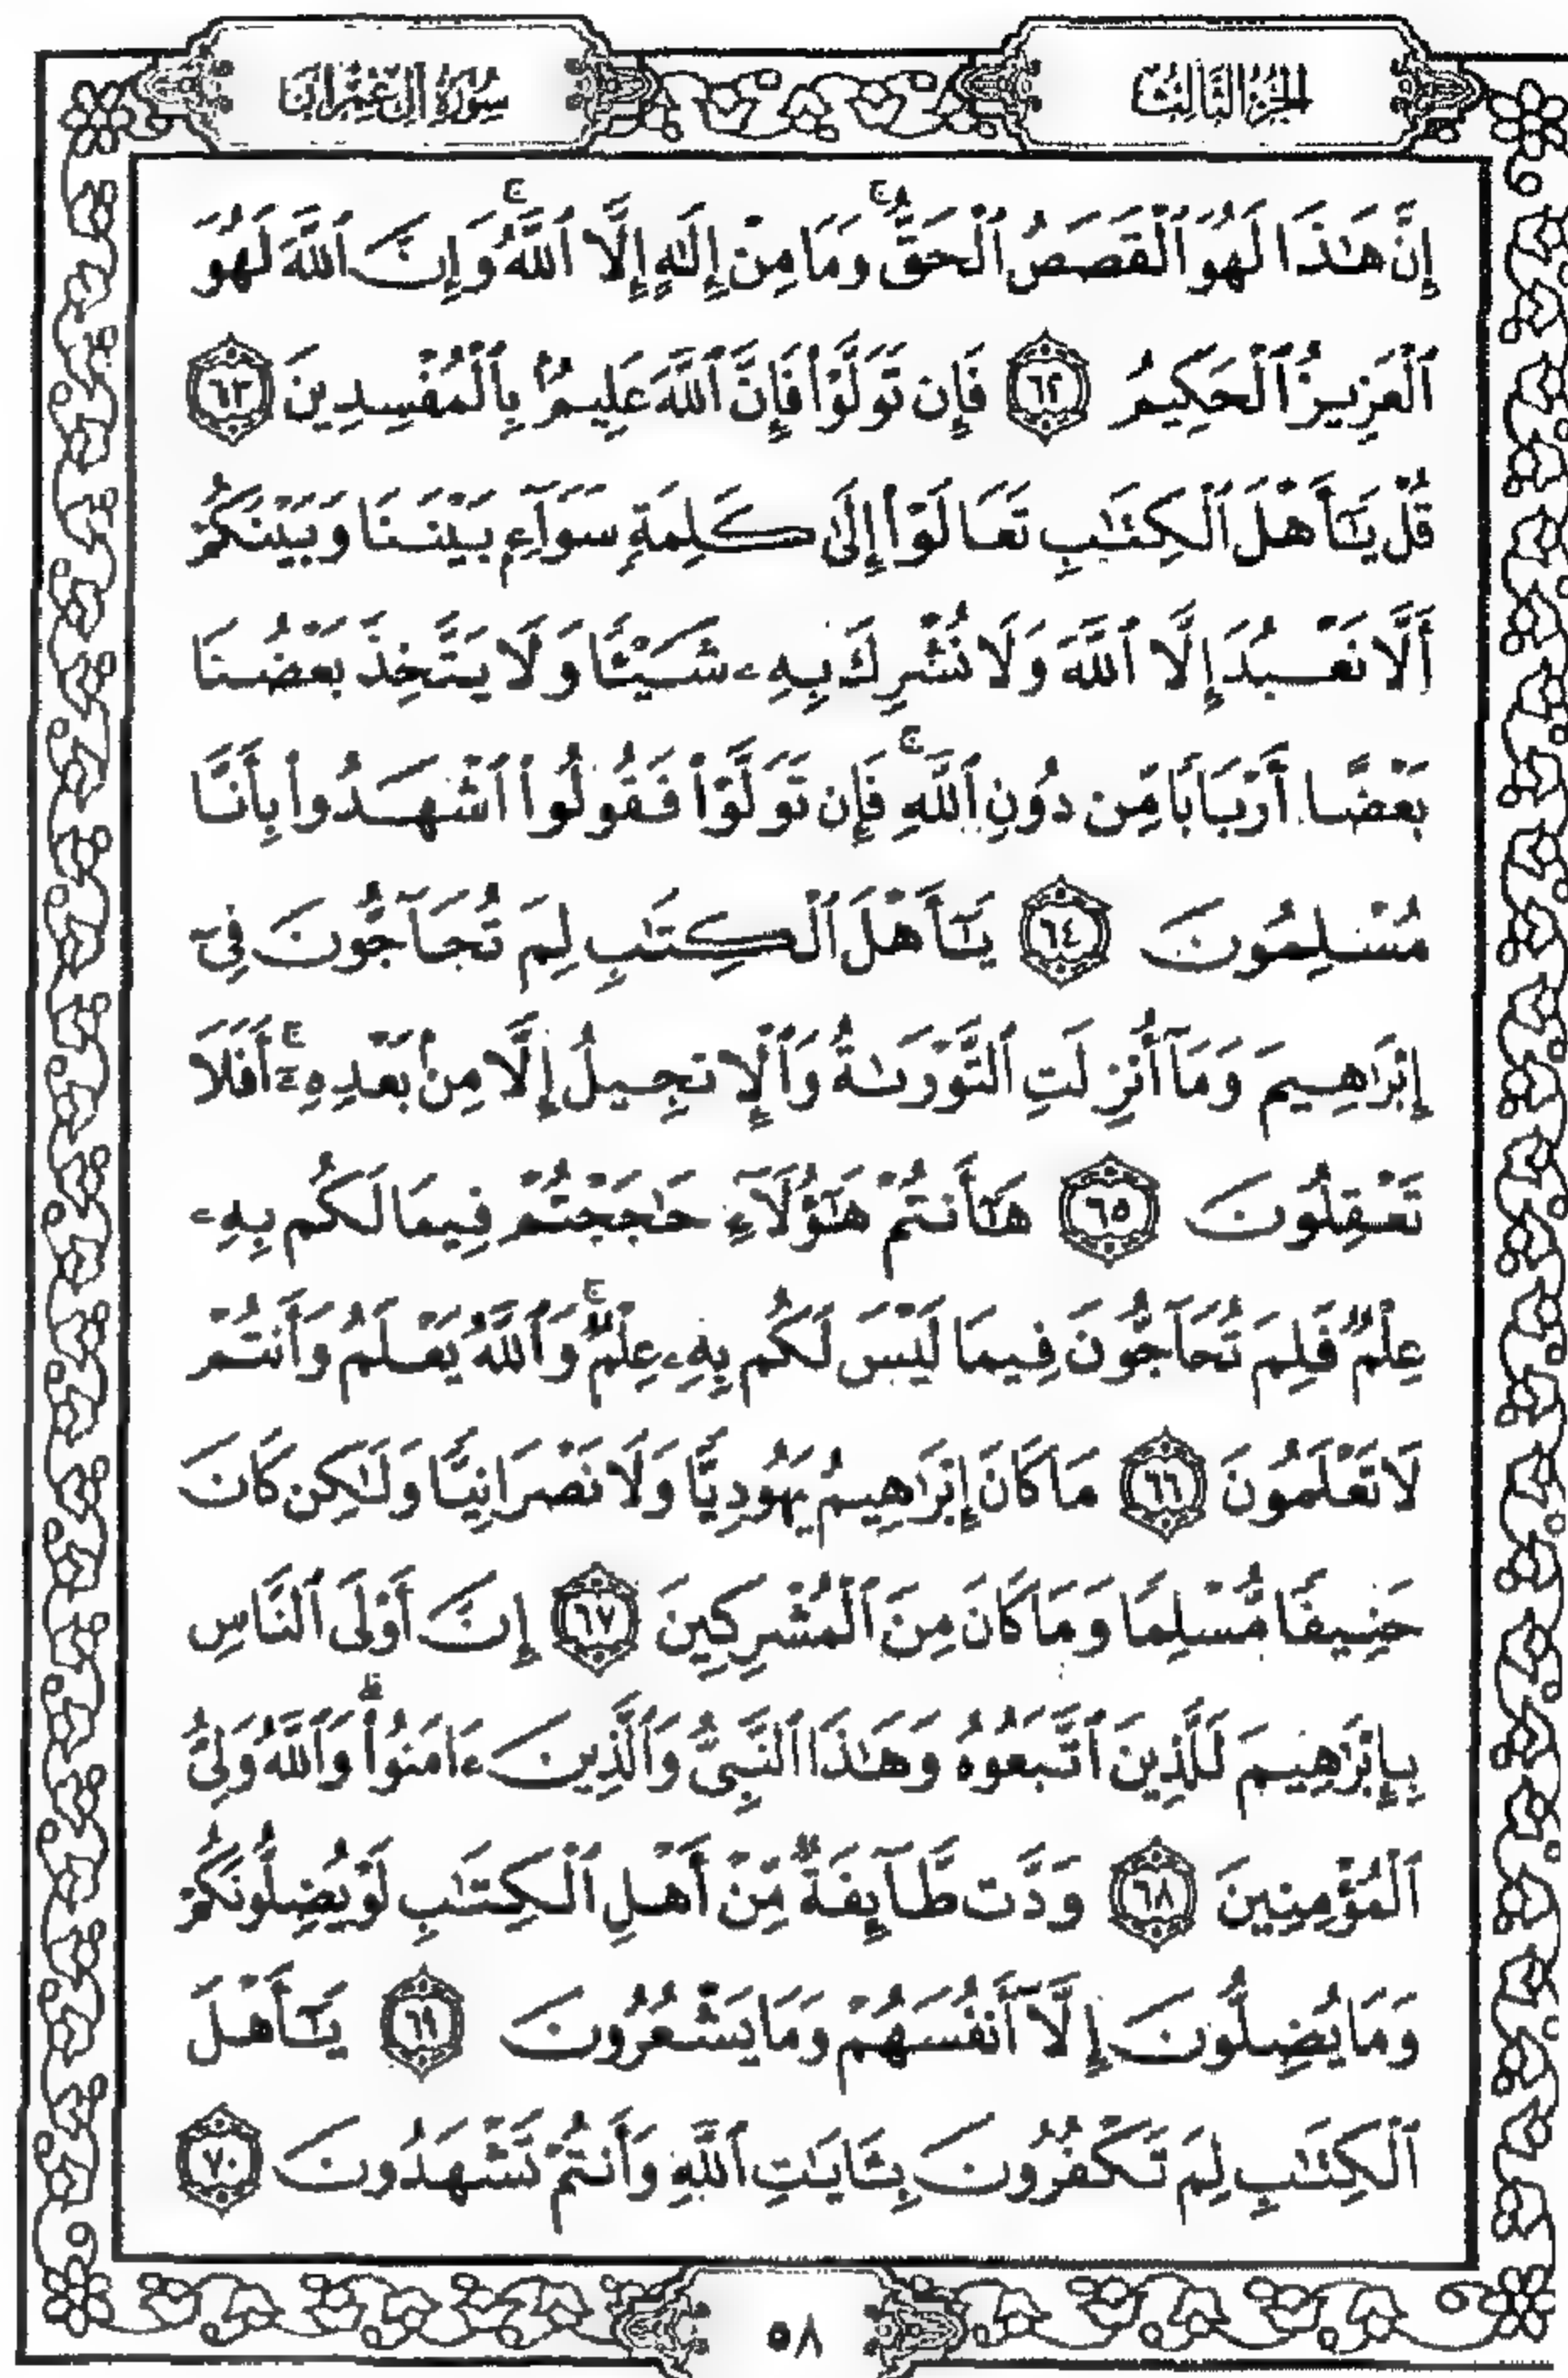 الجزء الثالث
سورة آل عمران
إِنَّ هَٰذَا لَهُوَ ٱلْقَصَصُ ٱلْحَقُّ ۚ وَمَا مِنْ إِلَٰهٍ إِلَّا ٱللَّهُ ۚ وَإِنَّ ٱللَّهَ لَهُوَ
ٱلْعَزِيزُ ٱلْحَكِيمُ ٦٢ فَإِن تَوَلَّوْا۟ فَإِنَّ ٱللَّهَ عَلِيمٌۢ بِٱلْمُفْسِدِينَ ٦٣
قُلْ يَٰٓأَهْلَ ٱلْكِتَٰبِ تَعَالَوْا۟ إِلَىٰ كَلِمَةٍ سَوَآءٍۭ بَيْنَنَا وَبَيْنَكُمْ
أَلَّا نَعْبُدَ إِلَّا ٱللَّهَ وَلَا نُشْرِكَ بِهِۦ شَيْـًٔا وَلَا يَتَّخِذَ بَعْضُنَا
بَعْضًا أَرْبَابًا مِّن دُونِ ٱللَّهِ ۚ فَإِن تَوَلَّوْا۟ فَقُولُوا۟ ٱشْهَدُوا۟ بِأَنَّا
مُسْلِمُونَ ٦٤ يَٰٓأَهْلَ ٱلْكِتَٰبِ لِمَ تُحَآجُّونَ فِىٓ
إِبْرَٰهِيمَ وَمَآ أُنزِلَتِ ٱلتَّوْرَىٰةُ وَٱلْإِنجِيلُ إِلَّا مِنۢ بَعْدِهِۦٓ ۚ أَفَلَا
تَعْقِلُونَ ٦٥ هَٰٓأَنتُمْ هَٰٓؤُلَآءِ حَٰجَجْتُمْ فِيمَا لَكُم بِهِۦ
عِلْمٌ فَلِمَ تُحَآجُّونَ فِيمَا لَيْسَ لَكُم بِهِۦ عِلْمٌ ۚ وَٱللَّهُ يَعْلَمُ وَأَنتُمْ
لَا تَعْلَمُونَ ٦٦ مَا كَانَ إِبْرَٰهِيمُ يَهُودِيًّا وَلَا نَصْرَانِيًّا وَلَٰكِن كَانَ
حَنِيفًا مُّسْلِمًا وَمَا كَانَ مِنَ ٱلْمُشْرِكِينَ ٦٧ إِنَّ أَوْلَى ٱلنَّاسِ
بِإِبْرَٰهِيمَ لَلَّذِينَ ٱتَّبَعُوهُ وَهَٰذَا ٱلنَّبِىُّ وَٱلَّذِينَ ءَامَنُوا۟ ۗ وَٱللَّهُ وَلِىُّ
ٱلْمُؤْمِنِينَ ٦٨ وَدَّت طَّآئِفَةٌ مِّنْ أَهْلِ ٱلْكِتَٰبِ لَوْ يُضِلُّونَكُمْ
وَمَا يُضِلُّونَ إِلَّآ أَنفُسَهُمْ وَمَا يَشْعُرُونَ ٦٩ يَٰٓأَهْلَ
ٱلْكِتَٰبِ لِمَ تَكْفُرُونَ بِـَٔايَٰتِ ٱللَّهِ وَأَنتُمْ تَشْهَدُونَ ٧٠
٥٨